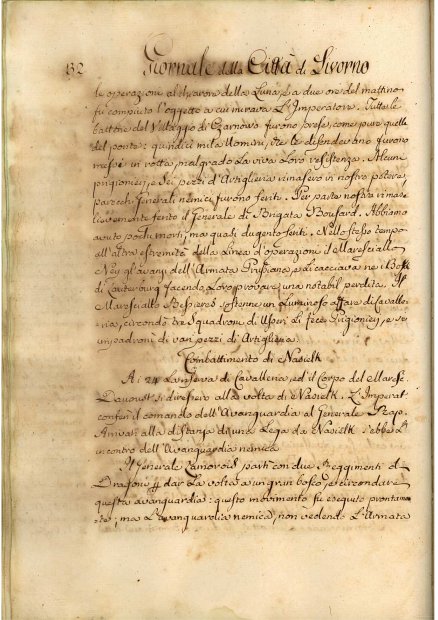 132 Giornale della Città di Livorno
le operazioni al chiarore della Luna, e a due ore del mattino
fu compiuto l'oggetto a cui mirava L'Imperatore. Tutte le
batterie del Villaggio di Czarnowo furono prese, come pure quelle
del ponte: quindici mila Uomini, che le difendevano furono
messi in rotta, malgrado la viva loro resistenza. Alcuni
prigionieri, e sei pezzi d'Artiglieria rimasero in nostro potere,
parecchi Generali nemici furono feriti. Per parte nostra rimase
lievemente ferito il Generale di Brigata Boufard. Abbiamo
avuto pochi morti, ma quasi dugento feriti. Nello stesso tempo
all'altra estremità della Linea d'operazioni il Maresciallo
Ney gl'avanzi dell'Armata Prussiana, e di cacciava ne i Boschi
di Lauterburg facendo Loro provare una notabil perdita. Il
Maresciallo Bessieres sostenne un Luminoso affare di Cavalle-
ria, circondò tre Squadroni di Usseri li fece Prigionieri, e s'
impadronì di varj pezzi di Artiglieria.
Combattimento di Nasielk
Ai 24 La riserva di Cavalleria ed il Corpo del Mares.
Davoust si diressero alla volta di Nasielk. L'Imperat.
conferì il comando dell'Avanguardia al Generale Rapp.
Arrivati alla distanza di una Lega da Nasielk s'ebbe L'
incontro dell'Avanguardia nemica
Il Generale partì con due Reggimenti di
Dragoni p dar La volta a un gran bosco, e circondare
questa avanguardia: questo movimento fu eseguito prontamen
te; ma L'avanguardia nemica, non vedendo L'Armata